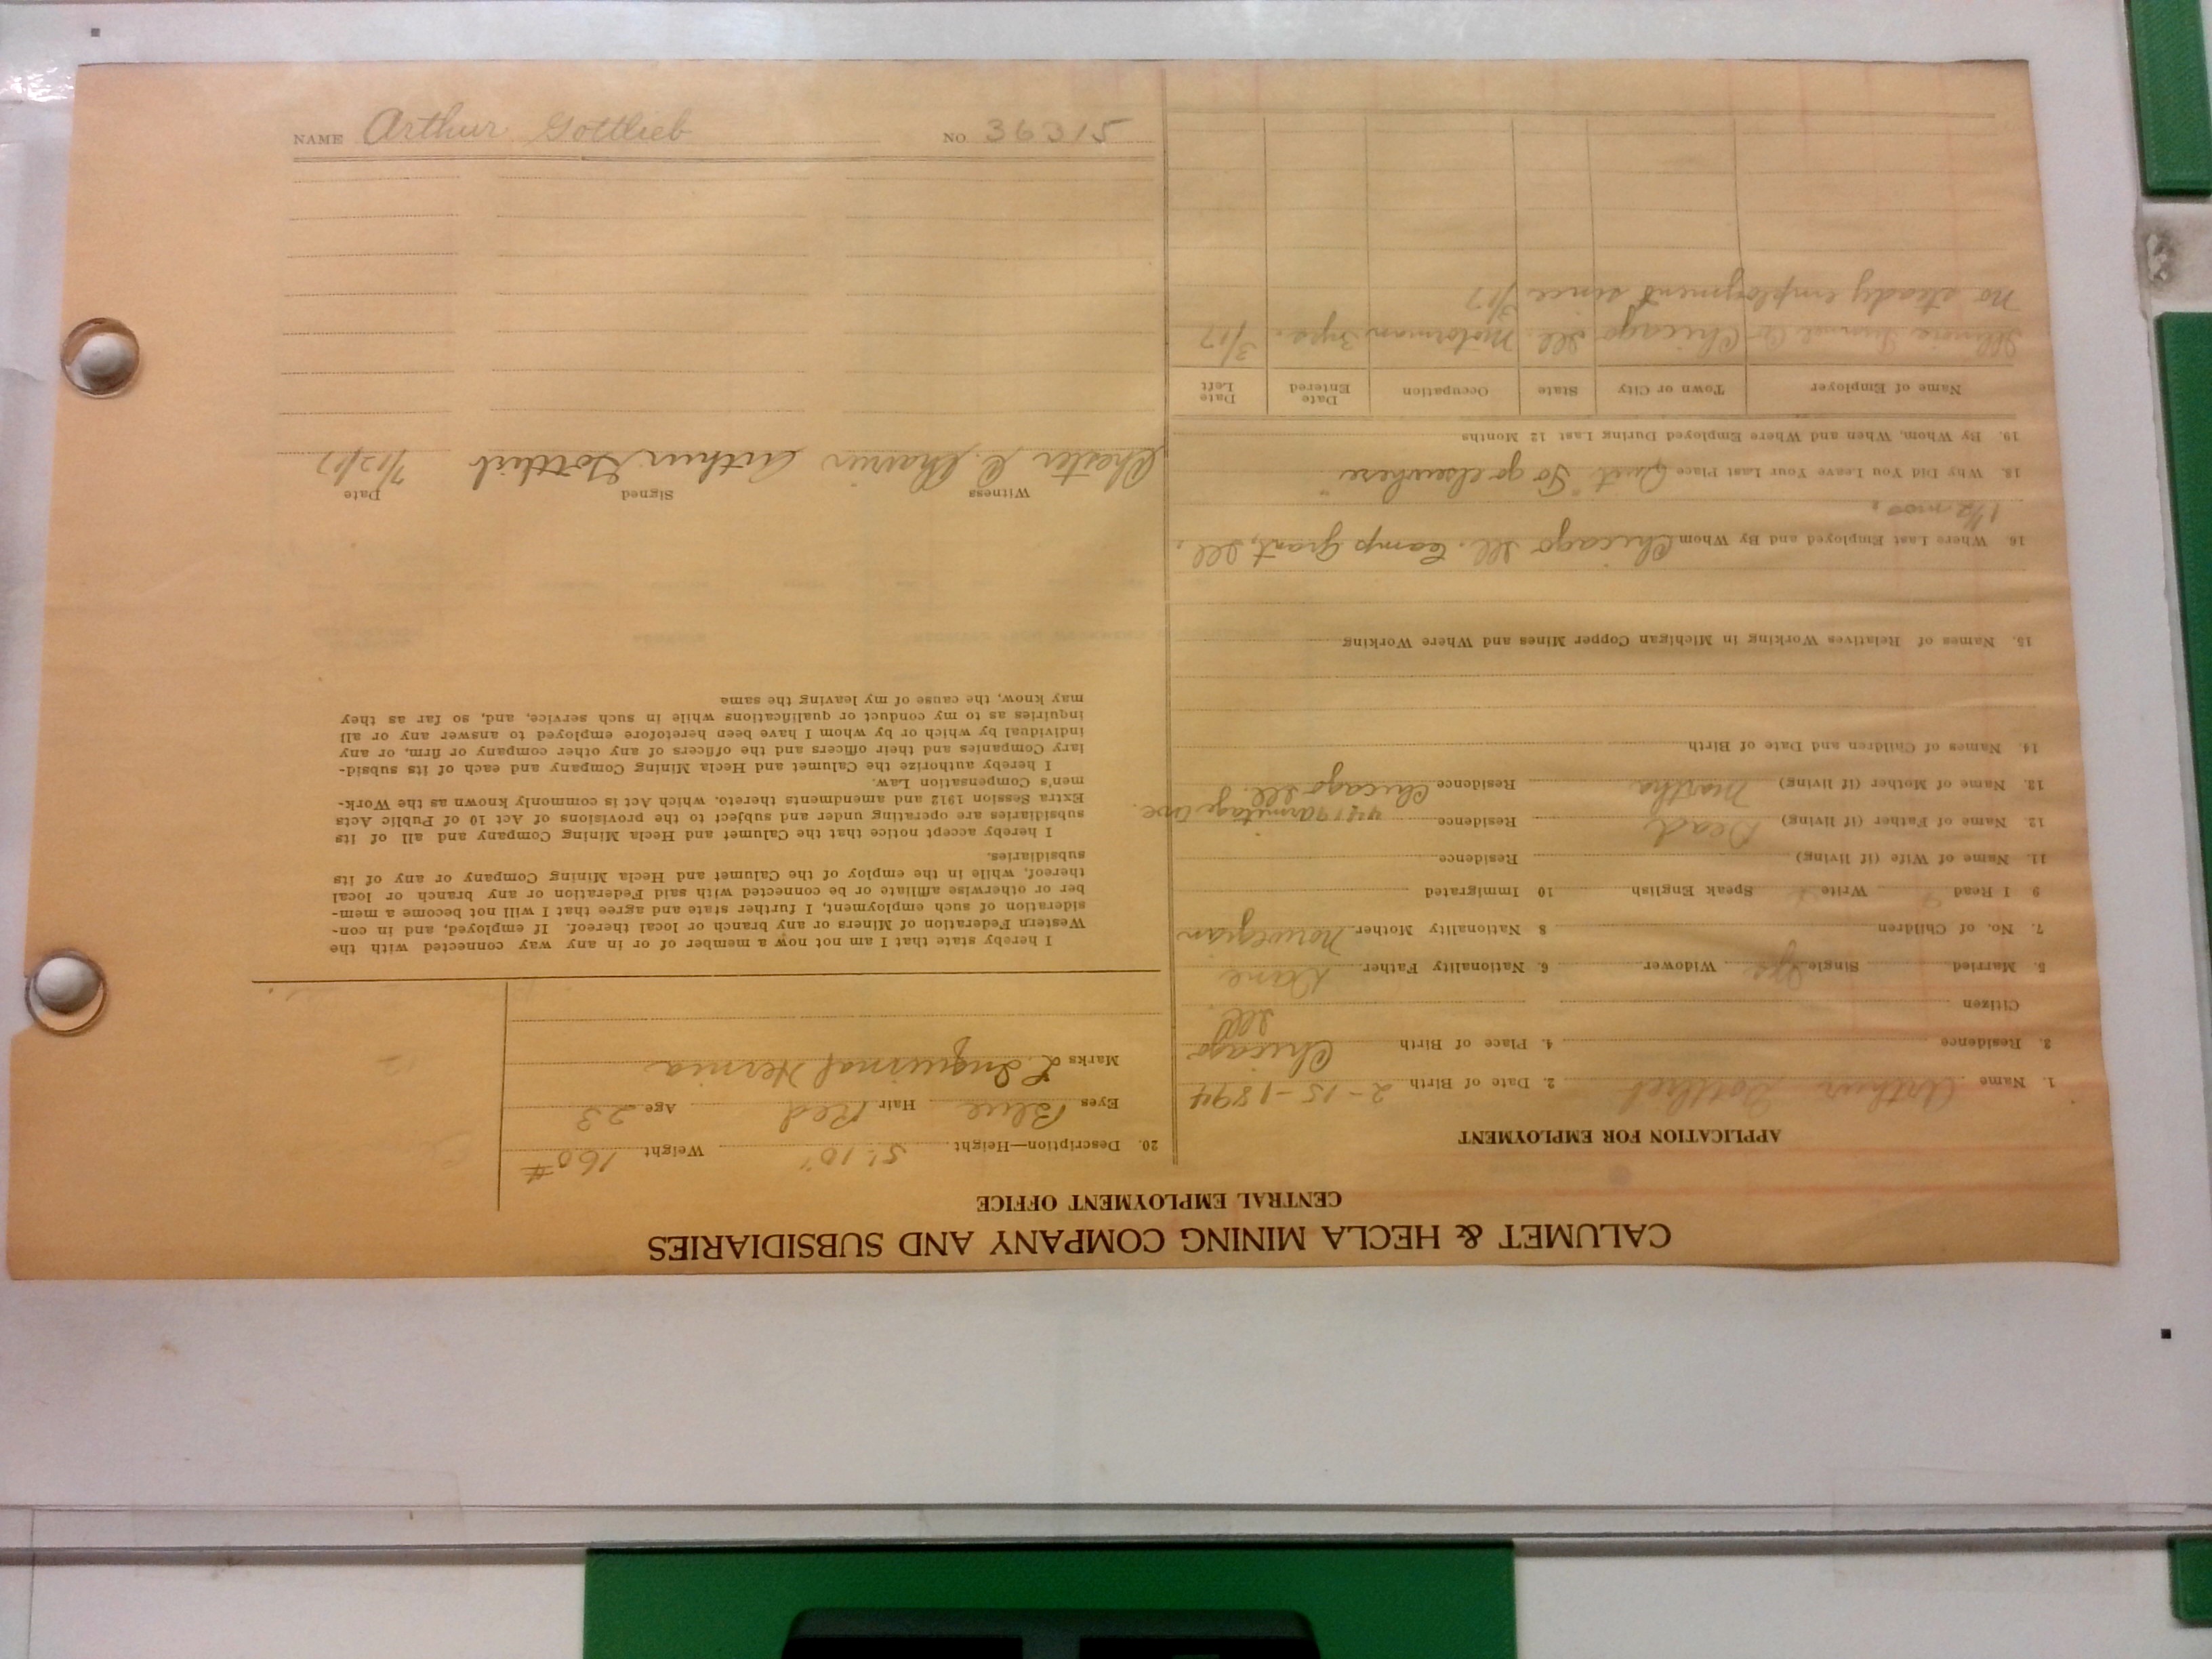 CALUMET & HECLA MINING COMPANY AND SUBSIDIARIES
CENTRAL EMPLOYMENT OFFICE
APPLICATION FOR EMPLOYMENT
1. Name Arthur Gottlieb 2. Date of Birth 2-15-1894
3. Residence 4. Place of Birth Chicago
Ill.
Citizen
5. Married Single Yes Widower 6. Nationality Father Dane
7. No. of Children 8 Nationality Mother Norwegian
9 I Read Write Speak English 10 Immigrated
11. Name of Wife (if living) Residence
12. Name of Father (if living) Dead Residence 4417 Armitage Ave.
13. Name of Mother (if living) Martha Residence Chicago Ill.
14. Names of Children and Date of Birth
15. Names of Relatives Working in Michigan Copper Mines and Where Working
16. Where Last Employed and By Whom Chicago Ill. Camp Grant, Ill.
1½ mos.
18. Why Did You Leave Your Last Place Quit "To go elsewhere"
19. By Whom, When and Where Employed During Last 12 Months
Name of Employer Town or City State Occupation Date Entered Date Left
Illinois Tunnel Co Chicago Ill. Motorman 3 yrs. 3/17
No steady employment since 3/17
20. Description—Height 5' 10" Weight 160#
Eyes Blue Hair Red Age 23
Marks L. Inguinal Hernia
I hereby state that I am not now a member of or in any way connected with the
Western Federation of Miners or any branch or local thereof. If employed, and in con-
sideration of such employment, I further state and agree that I will not become a mem-
ber or otherwise affiliate or be connected with said Federation or any branch or local
thereof, while in the employ of the Calumet and Hecla Mining Company or any of its
subsidiaries.
I hereby accept notice that the Calumet and Hecla Mining Company and all of its
subsidiaries are operating under and subject to the provisions of Act 10 of Public Acts
Extra Session 1912 and amendments thereto. which Act is commonly known as the Work-
men's Compensation Law.
I hereby authorize the Calumet and Hecla Mining Company and each of its subsid-
iary Companies and their officers and the officers of any other company or firm, or any
individual by which or by whom I have been heretofore employed to answer any or all
inquiries as to my conduct or qualifications while in such service, and, so far as they
may know, the cause of my leaving the same
Witness Signed Date
Chester C. Arthur Gottlieb 7/12/17
NAME Arthur Gottlieb NO 36315